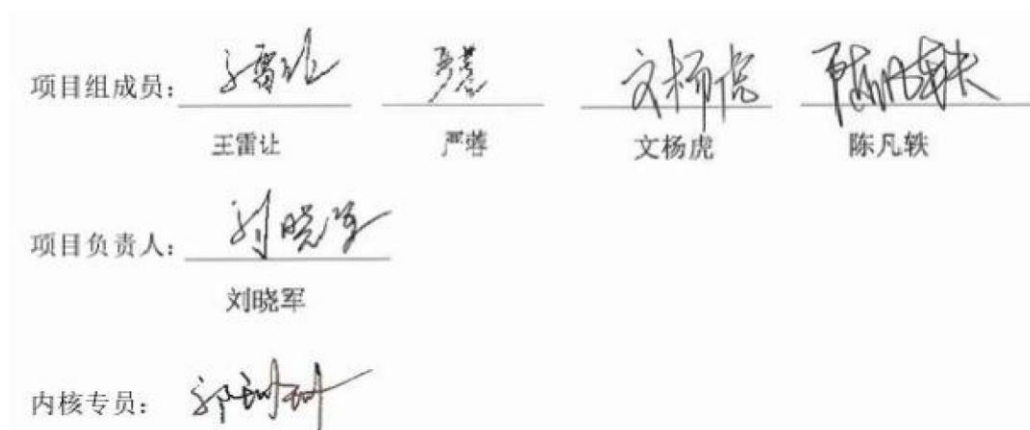 项目组成员： 王雷让 严蓉 文杨虎 陈凡轶
王雷让 严蓉 文杨虎 陈凡轶
项目负责人： 刘晓军
刘晓军
内核专员：